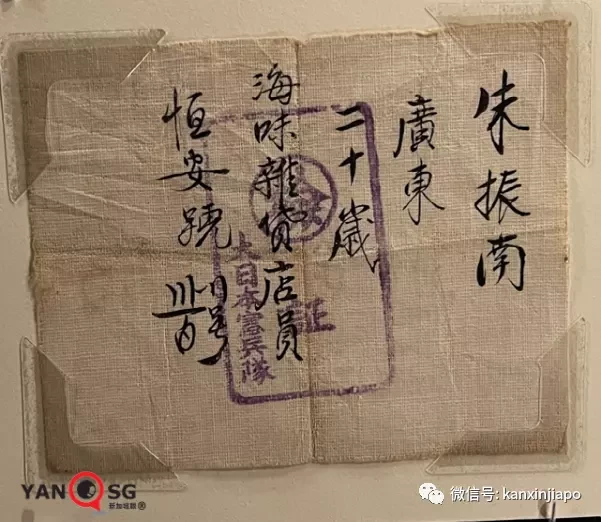 朱振南
廣東
二十歲
海味雜貨店員
恒安
大日本憲兵隊
証
YAN SG
新加坡眼
微信号: kanxinjiapo